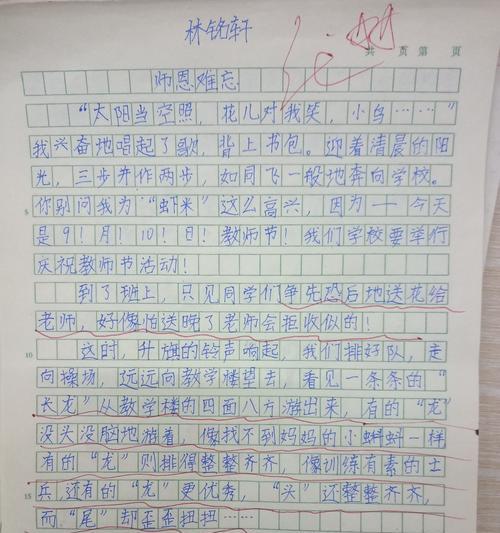 林铭轩
共 页 第 页
师恩难忘
"太阳当空照,花儿对我笑,小鸟……"
我兴奋地唱起了歌,背上书包。迎着清晨的阳
光,三步并作两步,如同飞一般地奔向学校。
5 你别问我为"虾米"这么高兴,因为——今天
是9!月!10!日!教师节!我们学校要举行
庆祝教师节活动!
到了班上,只见同学们争先恐后地送花给
老师,好像怕送晚了老师会拒收似的!
10 这时,升旗的铃声响起,我们排好队,走
向操场,远远向教学楼望去,看见一条条的"
长龙"从教学楼的四面八方游出来,有的"龙"
没头没脑地游着,像找不到妈妈的小蝌蚪一样
有的"龙"则排得整整齐齐,像训练有素的士
15 兵,还有的"龙"更优秀,"头"还整整齐齐,
而"尾"却歪歪扭扭……